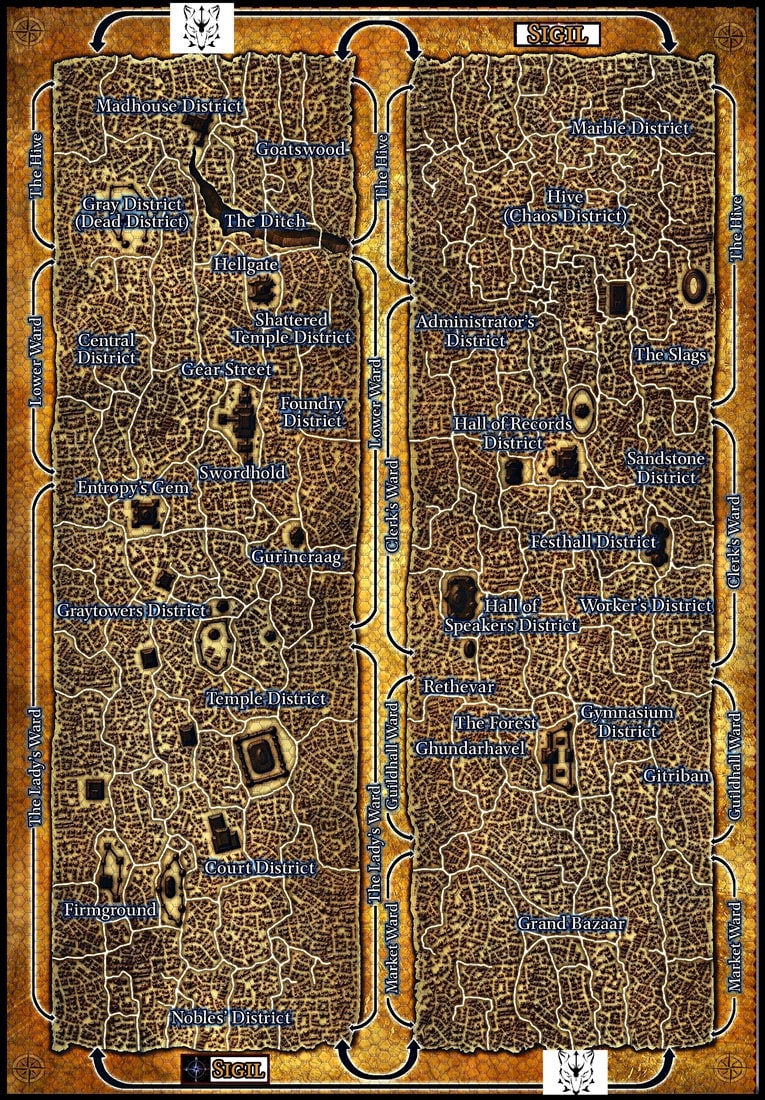 SIGIL
The Hive
Madhouse District
Goatswood
Gray District
(Dead District)
The Ditch
Hellgate
Lower Ward
Central
District
Shattered
Temple District
Gear Street
Foundry
District
Swordhold
Entropy's Gem
Gurincraag
Graytowers District
The Lady's Ward
Temple District
Court District
Firmground
Nobles' District
The Hive
Lower Ward
The Lady's Ward
The Hive
Clerk's Ward
Guildhall Ward
Market Ward
Marble District
Hive
(Chaos District)
Administrator's
District
The Slags
Hall of Records
District
Sandstone
District
Festhall District
Hall of
Speakers District
Worker's District
Rethevar
The Forest
Ghundarhavel
Gymnasium
District
Gitriban
Grand Bazaar
Clerk's Ward
Guildhall Ward
Market Ward
SIGIL